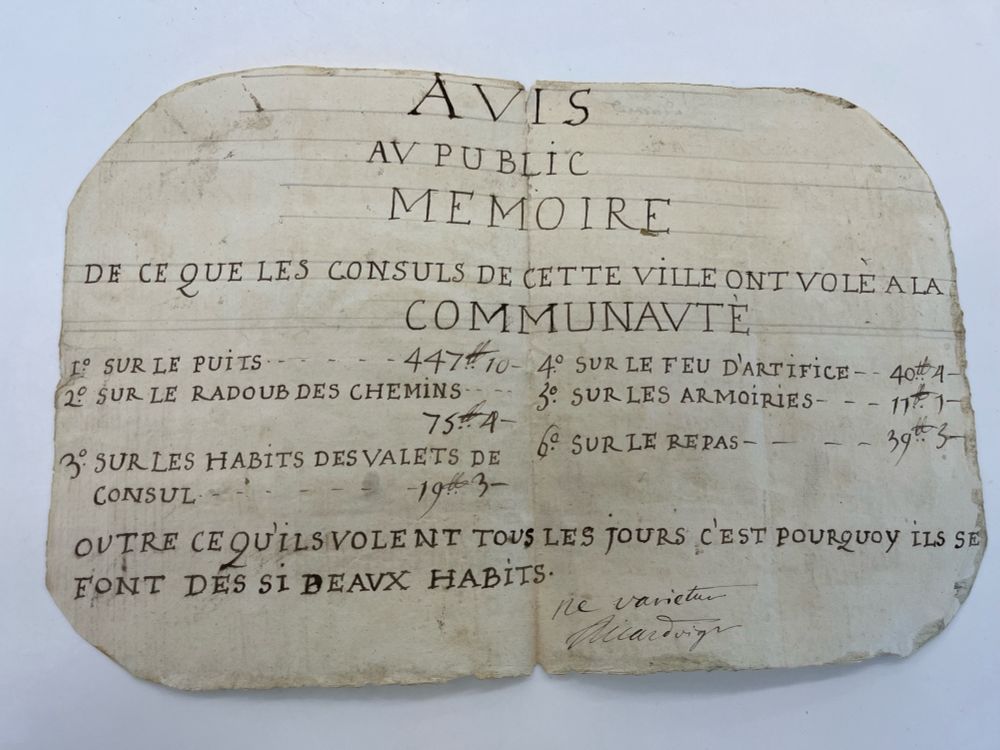 AVIS
AV PUBLIC
MEMOIRE
DE CE QUE LES CONSULS DE CETTE VILLE ONT VOLÈ A LA
COMMUNAVTÈ
1º. SUR LE PUITS - - - - - - 447tt 10-
2º. SUR LE RADOUB DES CHEMINS - - -
75tt 4-
3º. SUR LES HABITS DES VALETS DE
CONSUL - - - - - - 19tt 3-
4º. SUR LE FEU D'ARTIFICE - - 40tt 4-
5º. SUR LES ARMOIRIES - - - 17tt 1-
6º. SUR LE REPAS - - - - - 39tt 3-
OUTRE CE QU'ILS VOLENT TOUS LES JOURS C'EST POURQUOY ILS SE
FONT DES SI BEAUX HABITS.
ne varietur